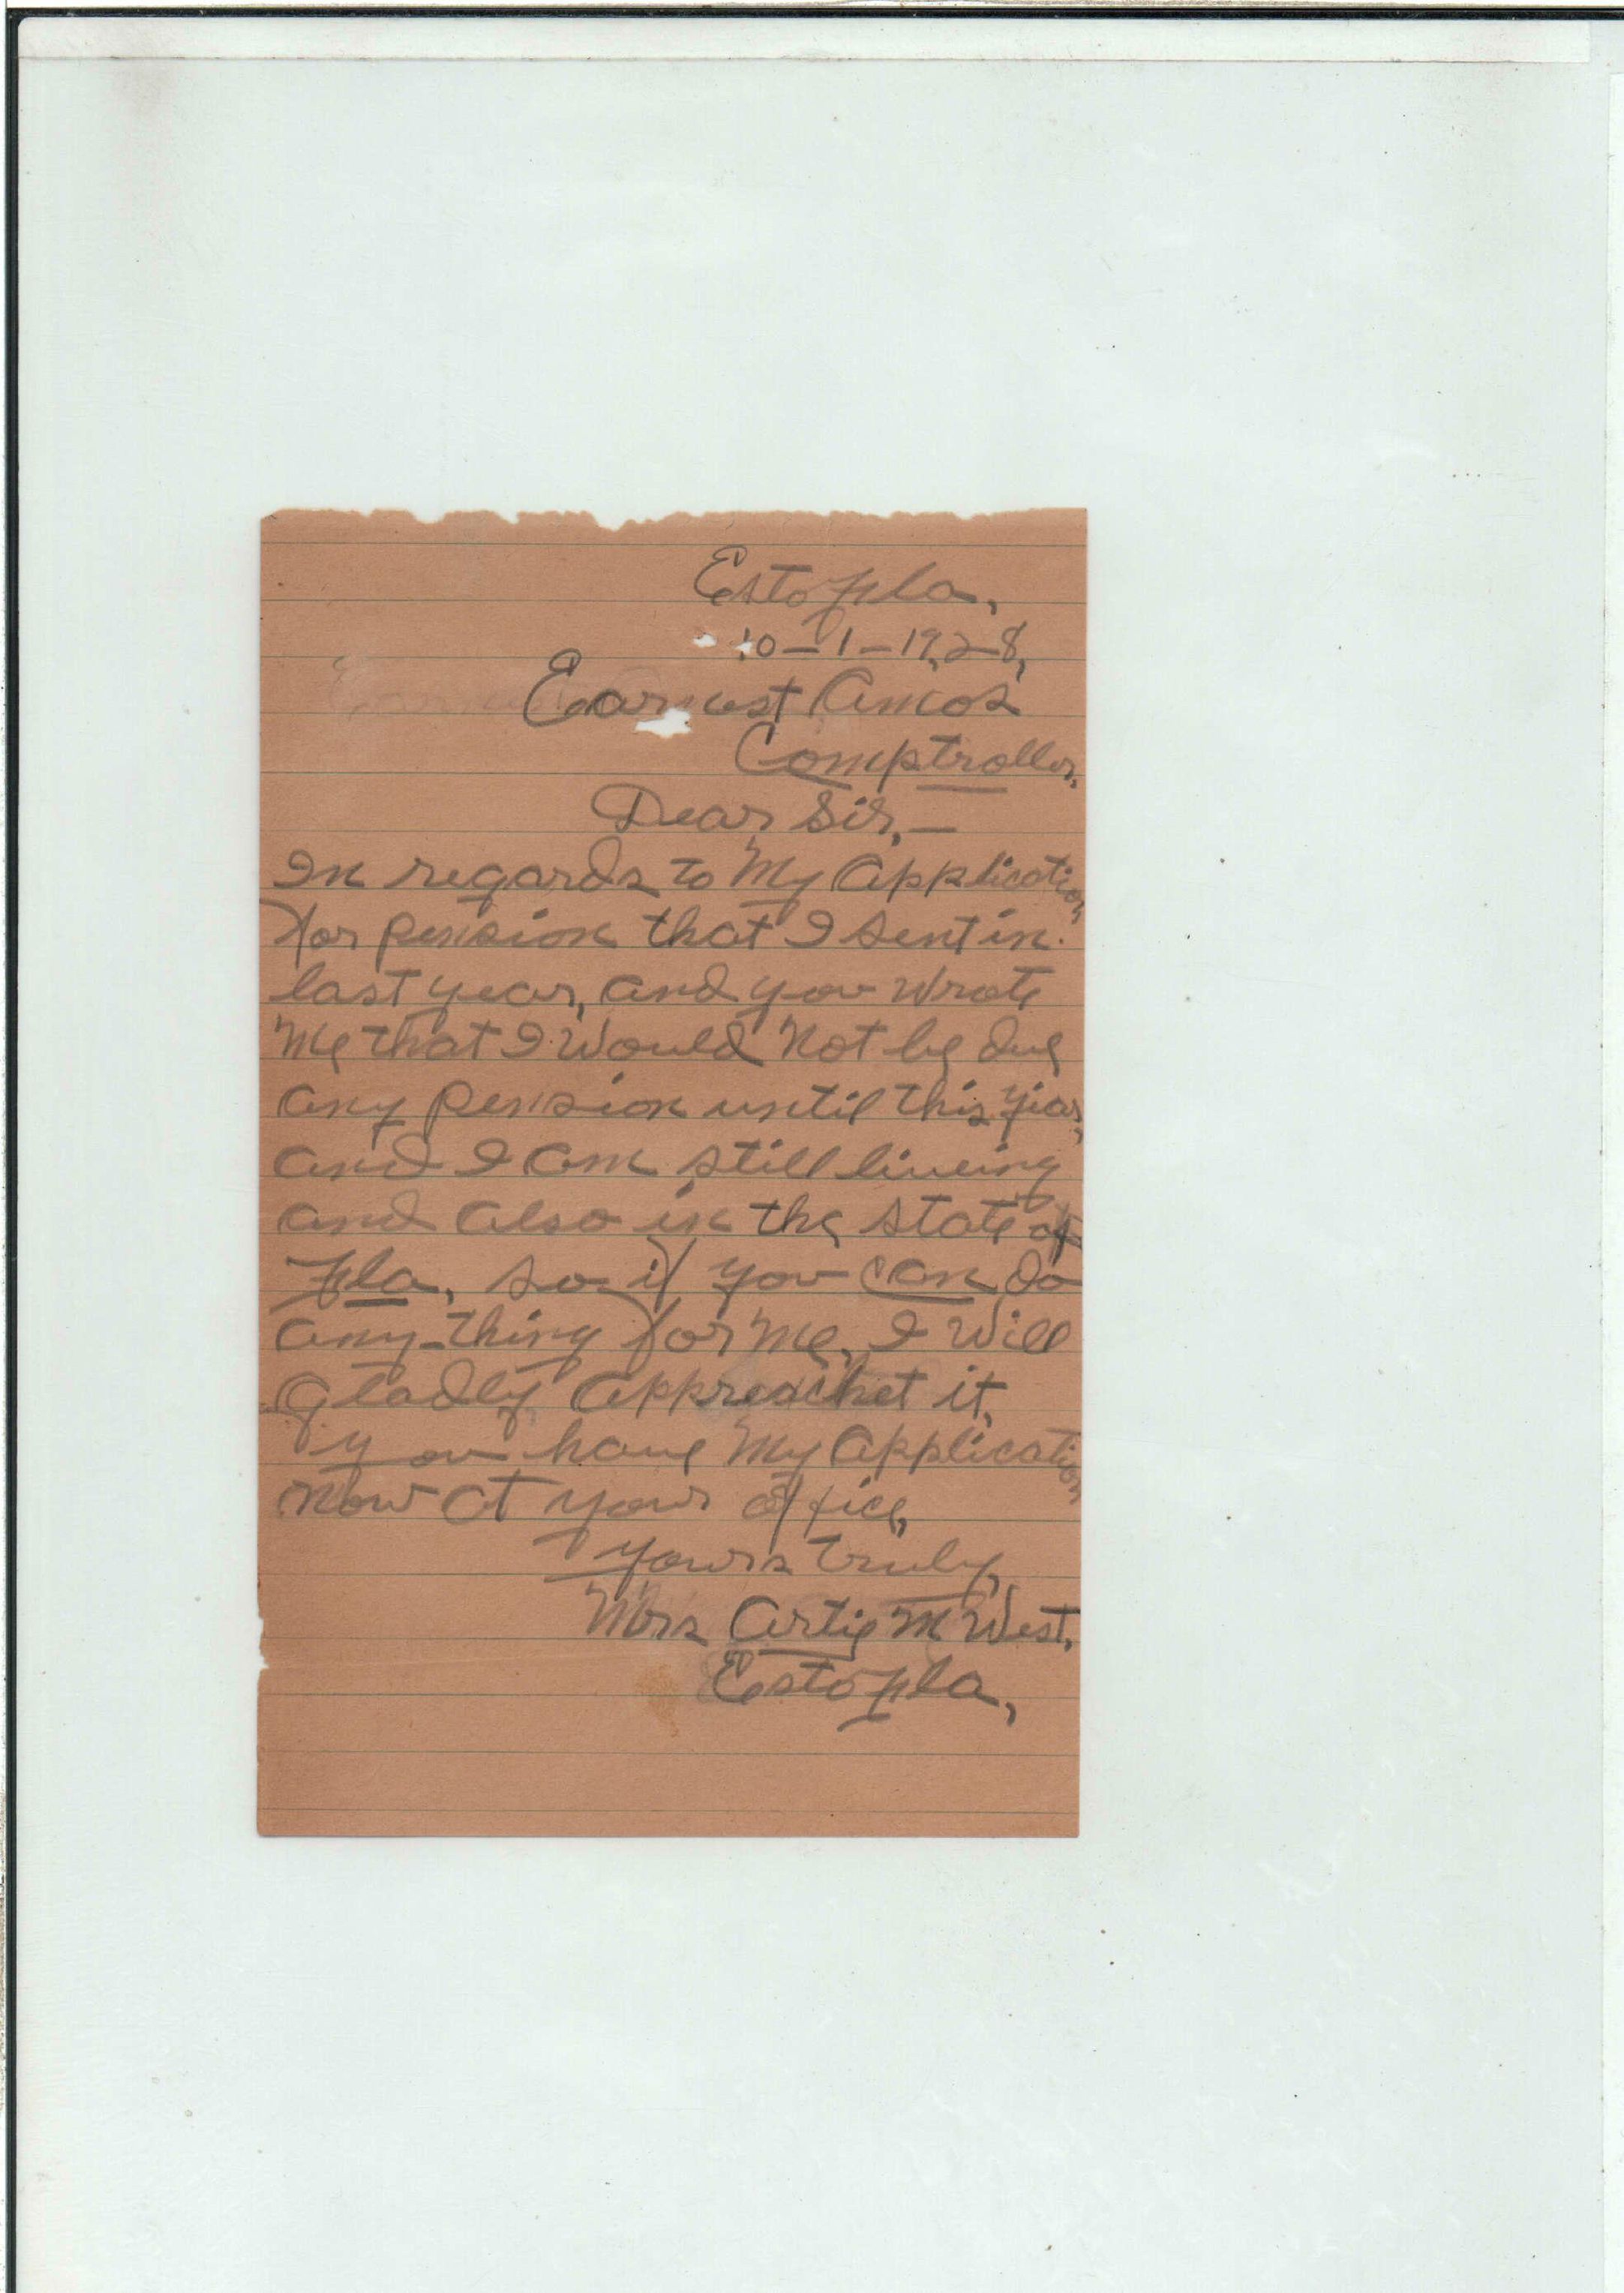 Esto Fla,
10-1-1928,
Earnest Amos
Comptroller,
Dear Sir,—
In regards to My Application
for pension that I sent in
last year, and you wrote
Me that I Would Not be due
any pension until this year,
and I am still liveing
and also in the state of
Fla, so if you can do
any-thing for Me, I Will
gladly appreachet it,
you have My Application
now at your office,
yours truly,
Mrs Artie M West,
Esto Fla,